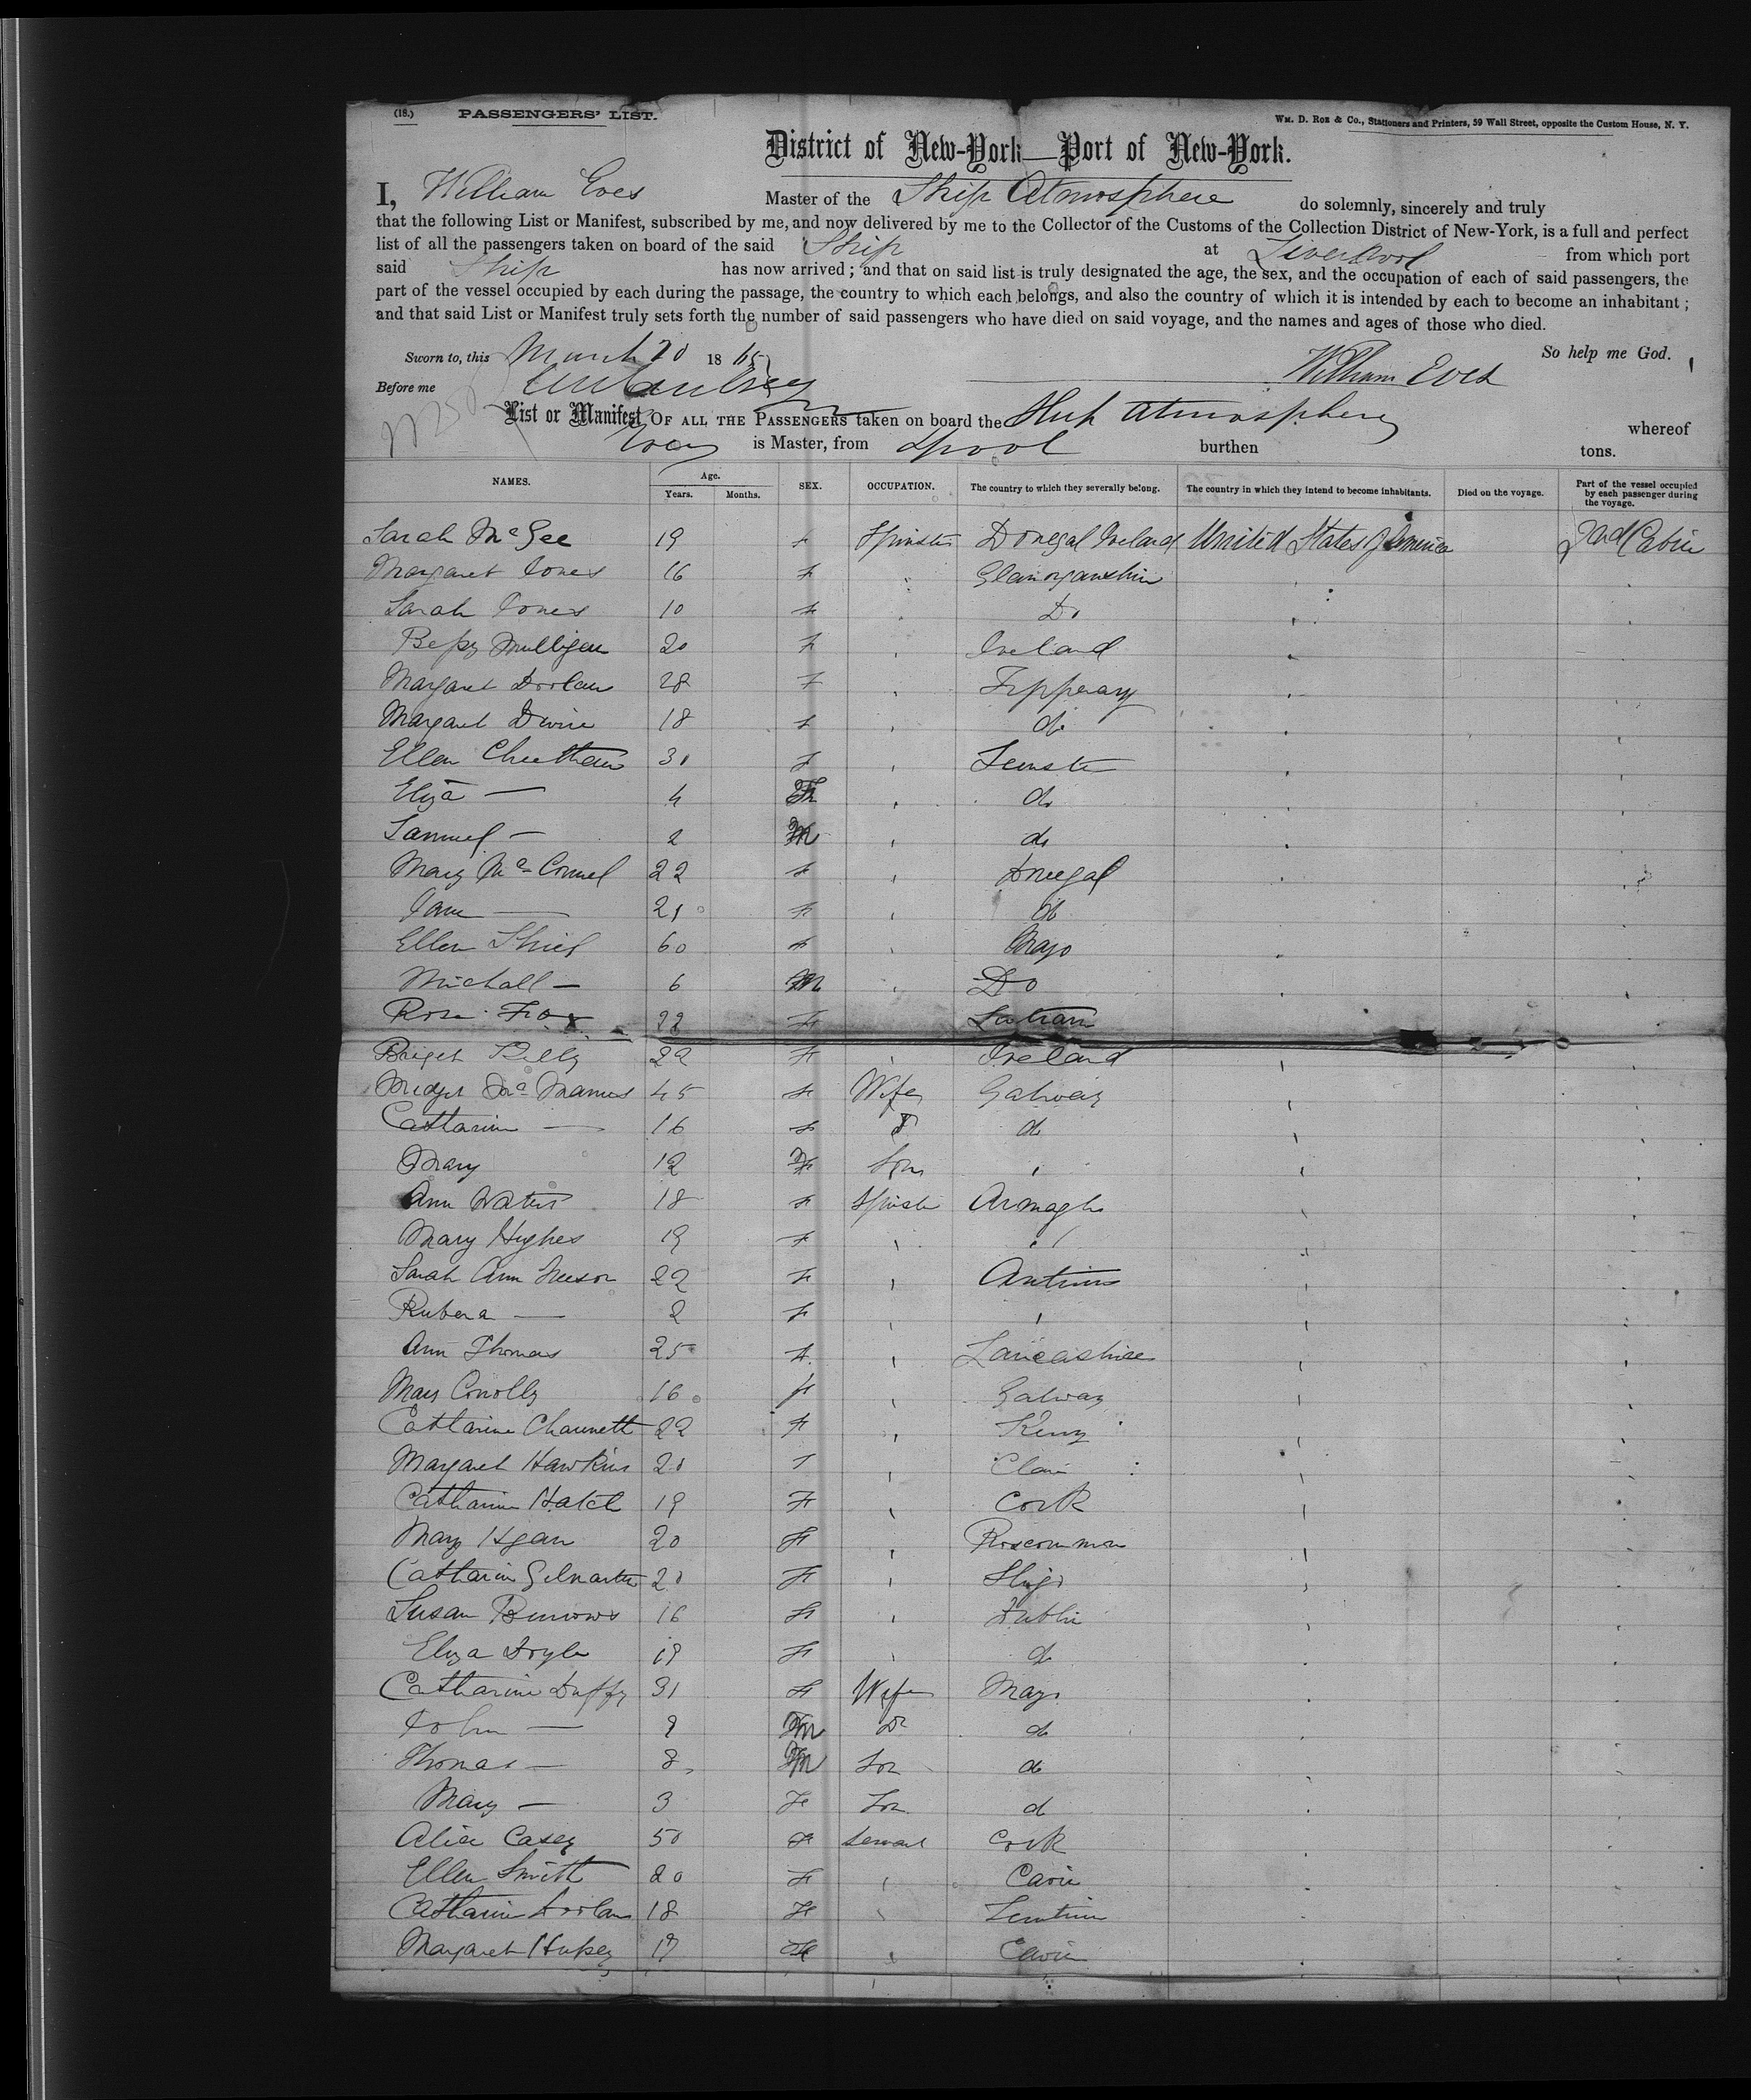 (18.) PASSENGERS' LIST. Wm. D. Roe & Co., Stationers and Printers, 59 Wall Street, opposite the Custom House, N. Y.
District of New-York—Port of New-York.
I, William Eves Master of the Ship Atmosphere do solemnly, sincerely and truly
that the following List or Manifest, subscribed by me, and now delivered by me to the Collector of the Customs of the Collection District of New-York, is a full and perfect
list of all the passengers taken on board of the said Ship at Liverpool from which port
said Ship has now arrived; and that on said list is truly designated the age, the sex, and the occupation of each of said passengers, the
part of the vessel occupied by each during the passage, the country to which each belongs, and also the country of which it is intended by each to become an inhabitant;
and that said List or Manifest truly sets forth the number of said passengers who have died on said voyage, and the names and ages of those who died.
Sworn to, this March 20 1865 So help me God.
Before me William Eves
List or Manifest OF ALL THE PASSENGERS taken on board the Ship Atmosphere whereof
Eves is Master, from Lpool burthen tons.
NAMES. Age. Years. Months. SEX. OCCUPATION. The country to which they severally belong. The country in which they intend to become inhabitants. Died on the voyage. Part of the vessel occupied by each passenger during the voyage.
Sarah McGee 19 F Spinster Donegal Ireland United States of America 2nd Cabin
Margaret Jones 16 F Glamorganshire
Sarah Jones 10 F Do
Bessy Mulligan 20 F Ireland
Margaret Doolan 28 F Tipperary
Margaret Dwire 18 F do
Ellen Cheetham 30 F Leinster
Eliza — 4 F do
Samuel — 2 M do
Mary McConnel 22 F Donegal
Jane — 21 F do
Ellen Shiel 60 F Mayo
Michall — 6 M Do
Rose Fox 22 F Leitram
Briget Kelly 22 F Ireland
Bridget McManus 45 F Wife Galway
Catharine — 16 F do
Mary 12 F Son
Ann Waters 18 F Spinster Armagh
Mary Hughes 19 F
Sarah Ann Neeson 22 F Antrim
Rubena — 2 F
Ann Thomas 25 F Lancashire
Mary Conolly 16 F Galway
Catharine 22 F Kerry
Margaret Hawkins 20 F Clare
Catharine Hatch 19 F Cork
Mary Hgan 20 F Roscommon
Catharine Gilmartin 20 F Sligo
Susan Burrows 16 F Dublin
Eliza Doyle 19 F do
Catharine Duffy 31 F Wife Mayo
John — 9 M Do do
Thomas — 8 M Son do
Mary — 3 F Son do
Alice Casey 50 F Servant Cork
Ellen Smith 20 F Cavin
Catharine Doolan 18 F Leitrim
Margaret 17 F Cavin